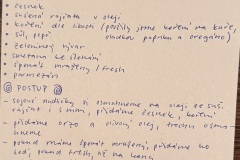 - česnek
- sušená rajčata v oleji
- koření dle chuti (použily jsme koření na kuře,
sůl, pepř sladkou papriku a oregano)
- zeleninový vývar
- smetana ke šlehání
- špenát mražený / fresh
- parmezán
@ POSTUP @
- sojové nudličky si osmahneme na oleji ze suš.
rajčat i s nimi, přidáme česnek, koření
- přidáme orzo a olej, trochu osma-
hneme
- pokud máme špenát mražený, přidáme ho
teď, pokud fresh, až na konci